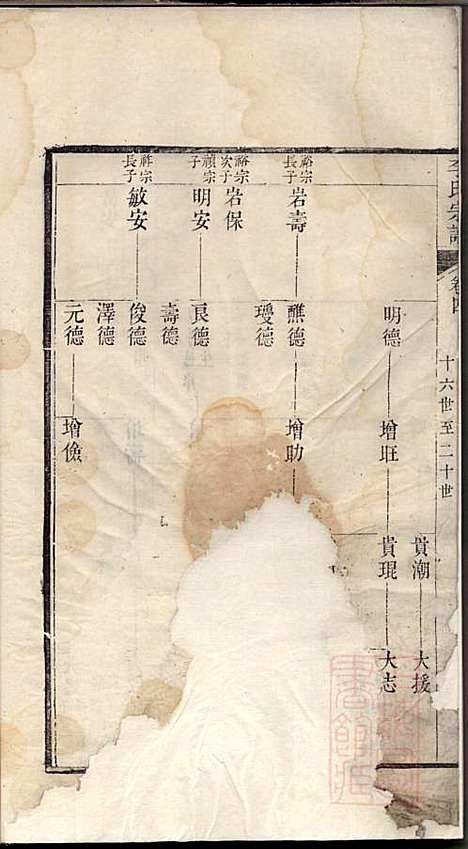 李氏宗譜
卷四
十六世至二十世
貴潮 大援
明德 增旺 貴琨 大志
裕宗長子 岩壽 醮德 增助
璦德
裕宗次子 岩保
禎宗子 明安 良德
壽德
祥宗長子 敏安 俊德
澤德
元德 增儉